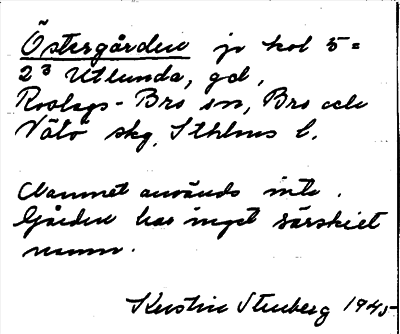 Östergården jr kol 5=
2³ Utlunda, gd,
Roslags-Bro sn, Bro och
Vätö skg, Sthlms l.
Namnet används inte.
Gården har inget särskilt
namn.
Kerstin Stenberg 1945